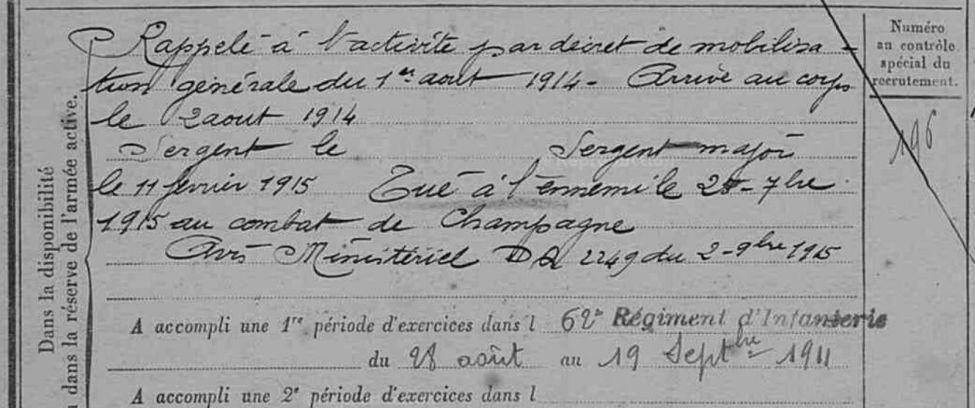 Rappelé à l'activité par décret de mobilisa-
tion générale du 1er aout 1914 - Arrivé au corps
le 2 aout 1914
Sergent le Sergent major
le 11 fevrier 1915 Tué à l'ennemi le 25-7bre
1915 au combat de Champagne
Avis Ministériel 2249 du 2-9bre 1915
Numéro
au contrôle
spécial du
recrutement.
196
Dans la disponibilité
dans la réserve de l'armée active.
A accompli une 1re période d'exercices dans l 62e Régiment d'Infanterie
du 28 août au 19 Septbre 1911
A accompli une 2e période d'exercices dans l